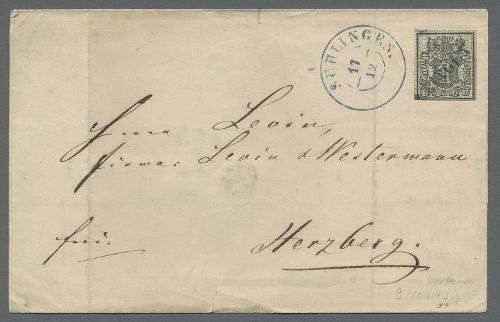 SUHLINGEN.
17
12
Herrn Levin,
Firma: Levin & Westermann
frei.
Herzberg.